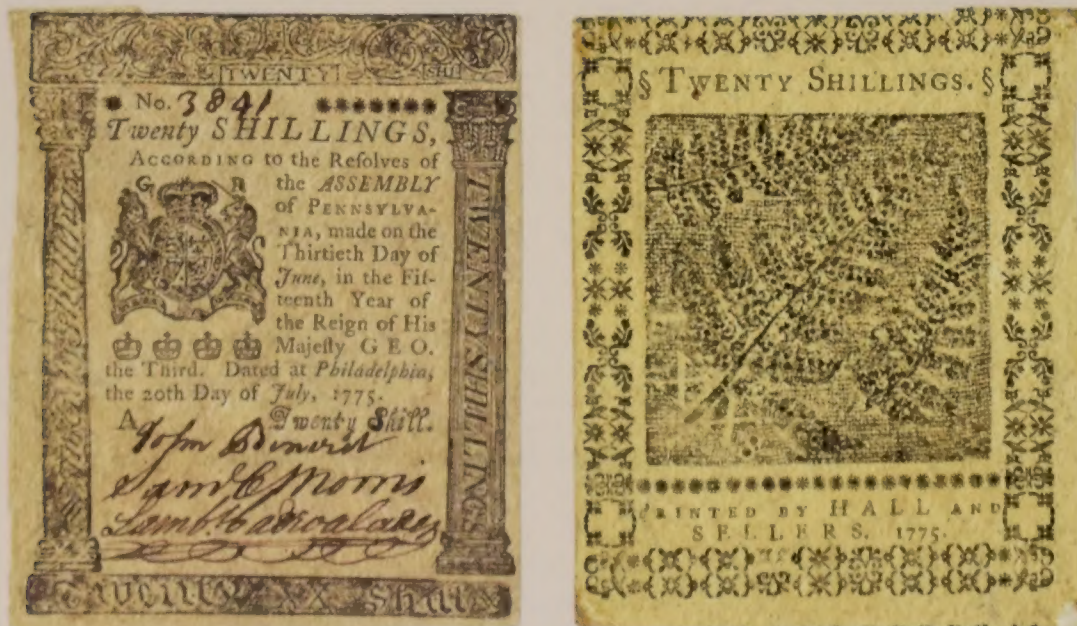 TWENTY SHI
No. 3841
Twenty SHILLINGS,
ACCORDING to the Reſolves of
G R
the ASSEMBLY
of PENNSYLVA-
NIA, made on the
Thirtieth Day of
June, in the Fif-
teenth Year of
the Reign of His
Majeſty GEO.
the Third. Dated at Philadelphia,
the 20th Day of July, 1775.
A Twenty Shill.
John
Saml C Morris
TWENTY SHILLINGS
Twenty XX Shill
§ TWENTY SHILLINGS. §
PRINTED BY HALL AND
SELLERS. 1775.